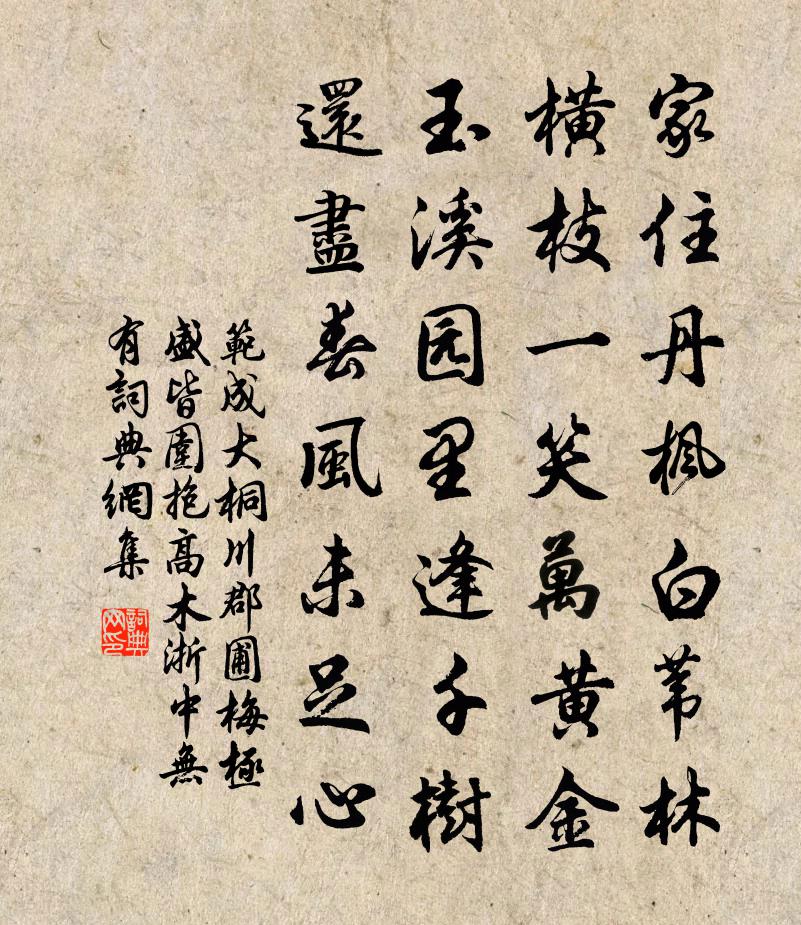 家住丹楓白苇林
橫枝一笑萬黃金
玉溪园里逢千樹
還盡春風未足心
範成大桐川郡圃梅極
盛皆圍抱高木浙中無
有詞典網集
詞典
网印